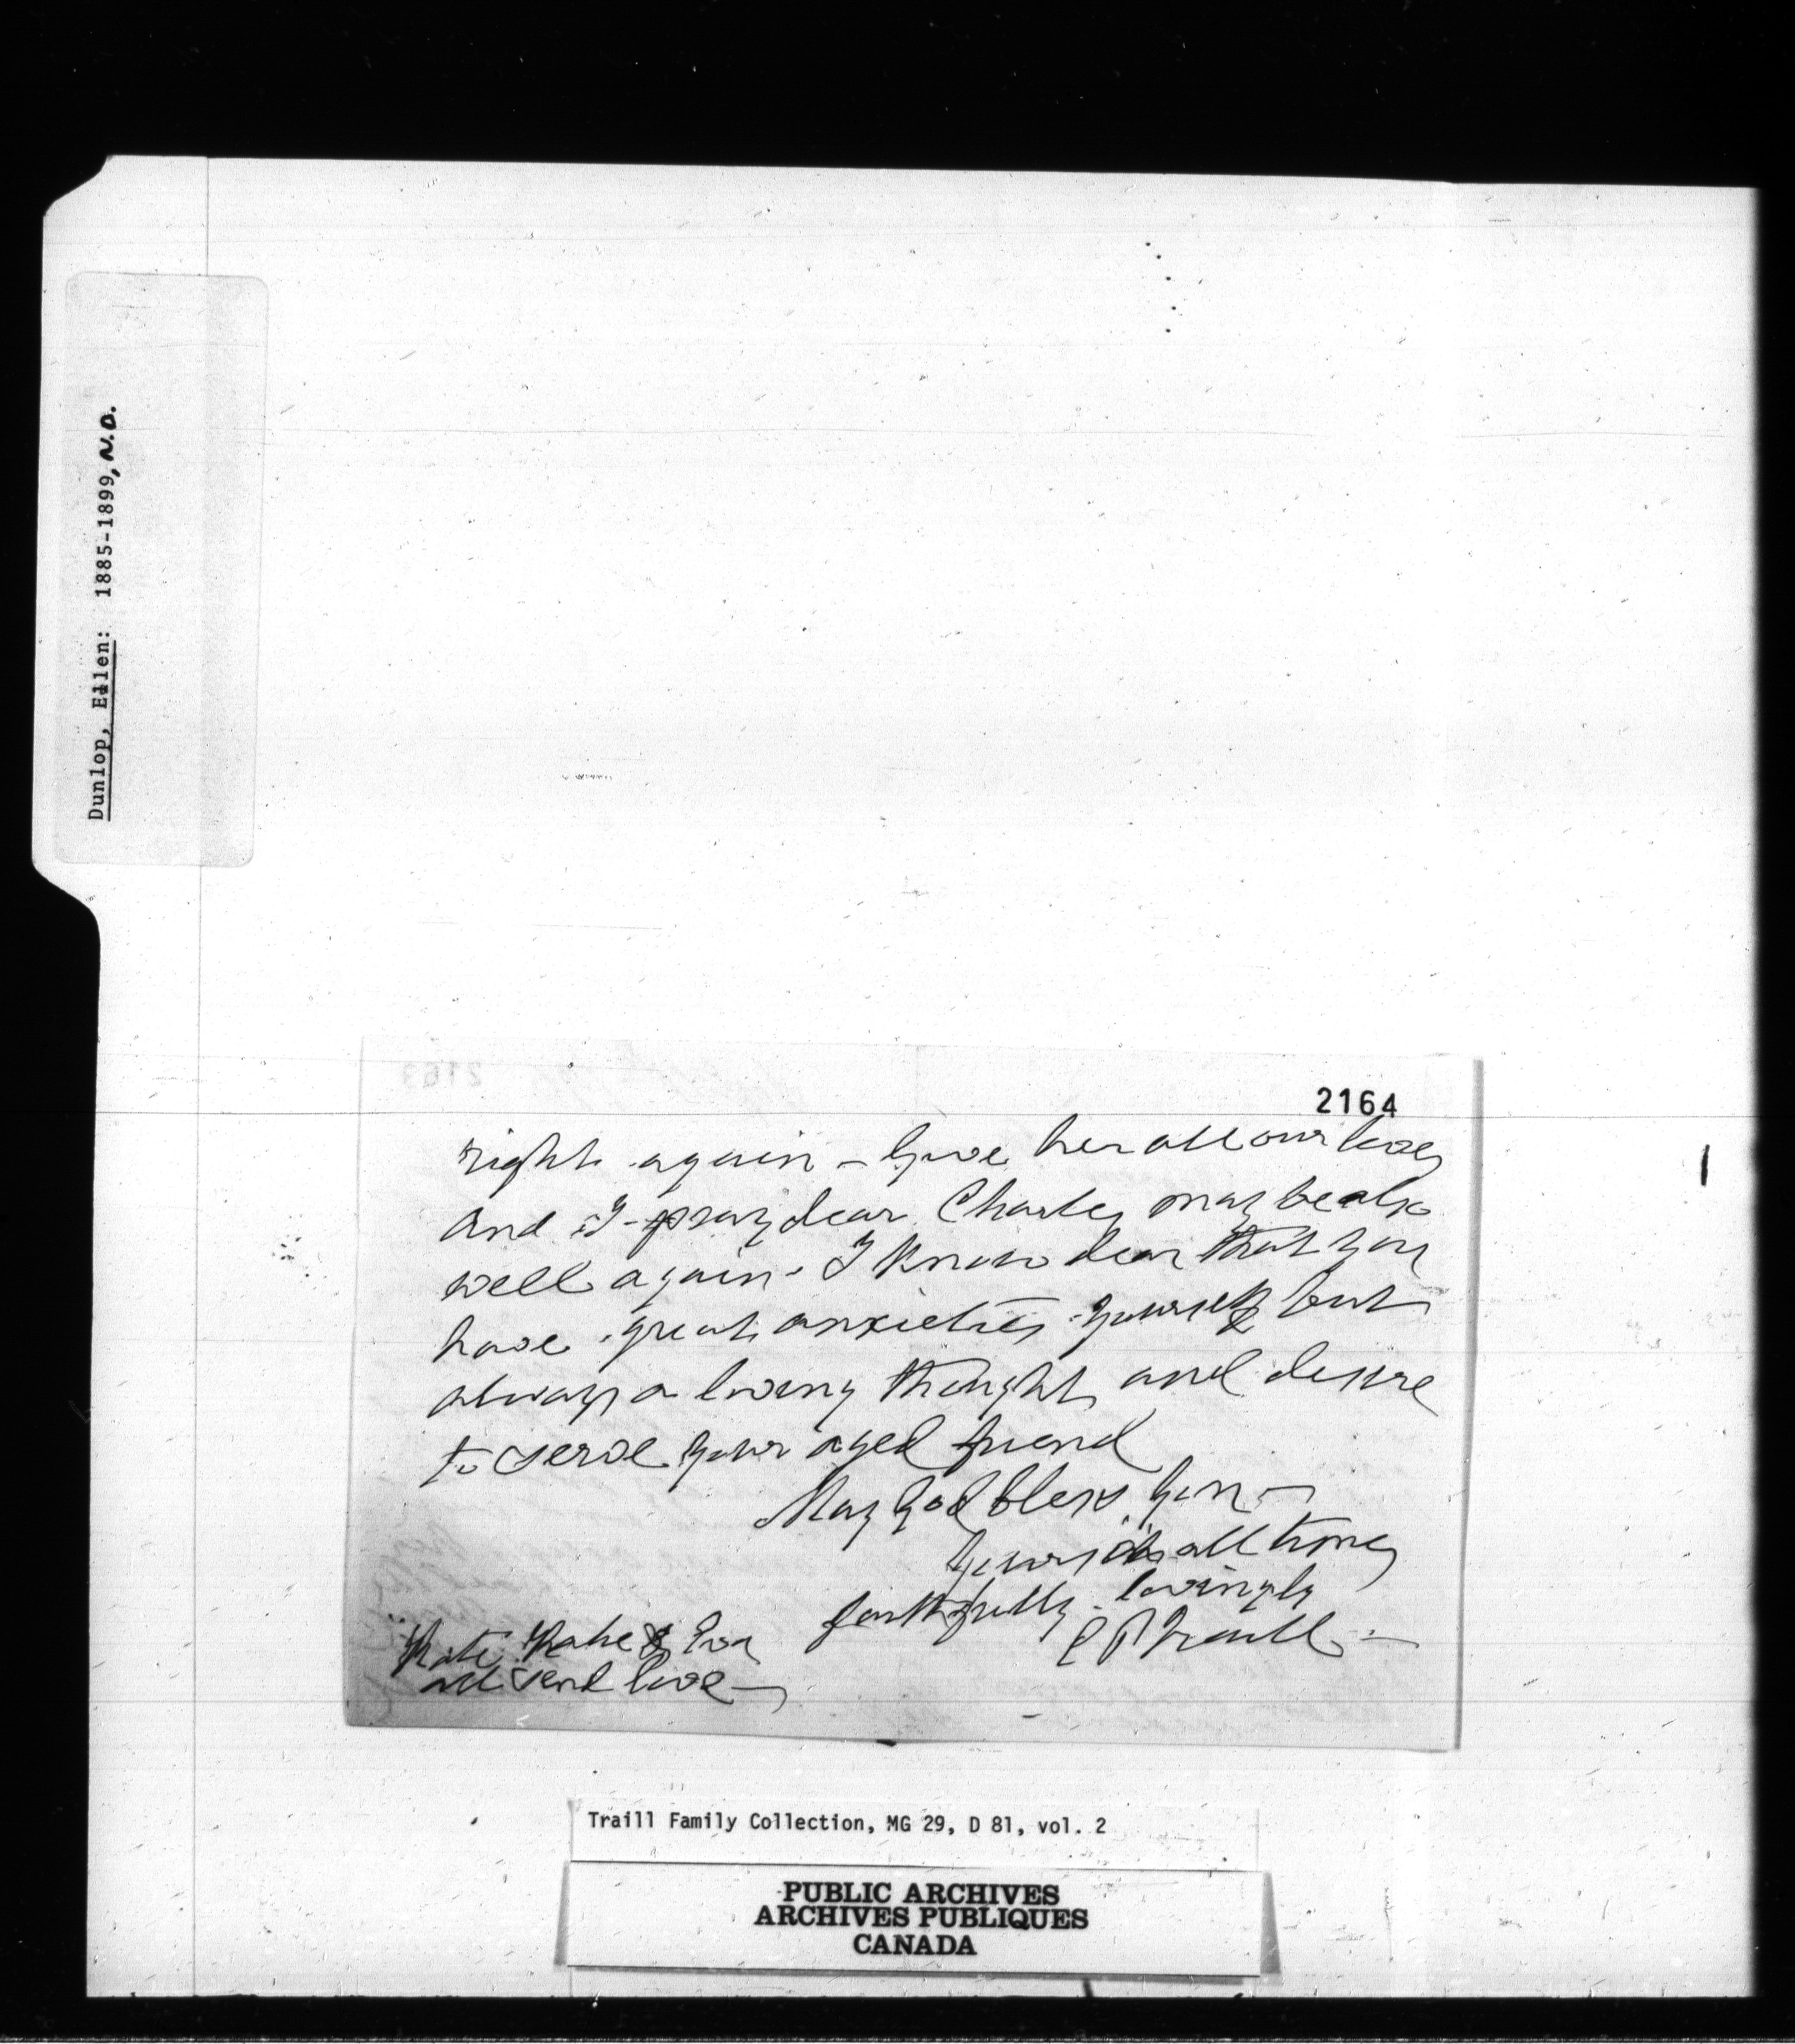 Dunlop, Ellen: 1885-1899, N.D.
2164
right again - Give her all our love
and I pray dear Charley may be also
well again. I know dear that you
have great anxieties yourself but
always a loving thought and desire
to serve your aged friend
May God bless you -
Yours at all times
faithfully - lovingly
C P Traill -
Kate Katie & Eva
all send love -
Traill Family Collection, MG 29, D 81, vol. 2
PUBLIC ARCHIVES
ARCHIVES PUBLIQUES
CANADA